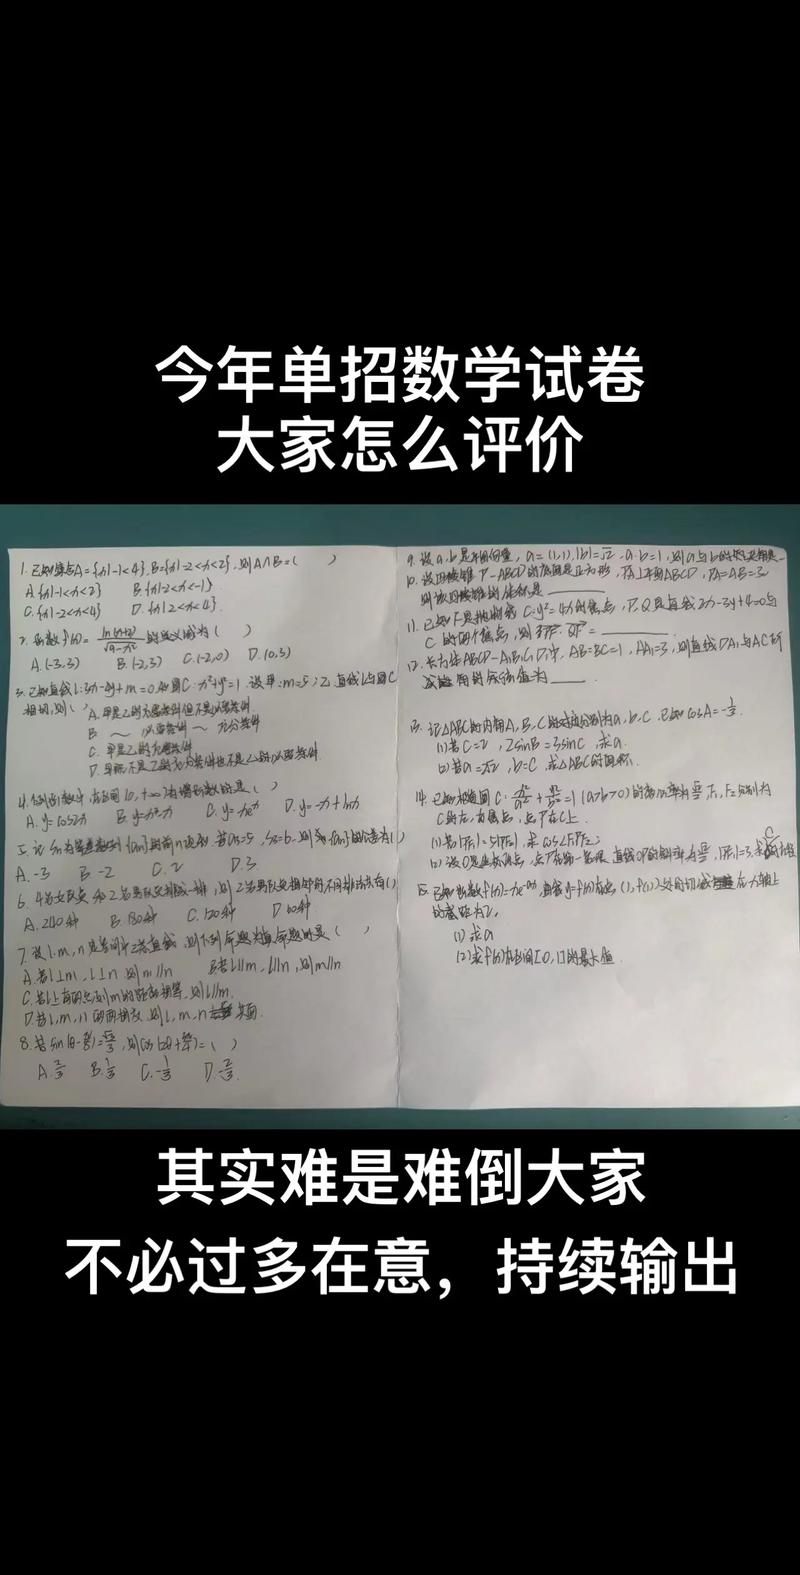 今年单招数学试卷
大家怎么评价
1. 已知集合A={x|-1<x<4}, B={x|-2<x<2}, 则A∩B=( )
A.{x|-1<x<2} B.{x|-2<x<-1}
C.{x|-2<x<4} D.{x|2<x<4}.
2. 函数f(x)= 的定义域为( )
A.(-3,3) B.(-2,3) C.(-2,0) D.(0,3)
3. 已知直线l:3x-4y+m=0和圆C:x²+y²=1. 设甲:m=5;乙:直线l与圆C
相切,则( ) A. 甲是乙的充要条件但不是必要条件
B. ～ 必要条件 ～ 充分条件
C. 甲是乙的充要条件
D. 甲既不是乙的充分条件也不是乙的必要条件
4. 下列函数中,在区间(0,+∞)为增函数的是( )
A. y=cos2x B. y=x²-x C. y=xeˣ D. y=-x+lnx
5. 记Sₙ为等差数列{aₙ}的前n项和. 若a₅=5, S₃=6, 则{aₙ}的公差为( )
A. -3 B. -2 C. 2 D. 3
6. 4名女队员和2名男队员排成一排,则2名男队员相邻的不同排法共有( )
A. 240种 B. 180种 C. 120种 D. 60种
7. 设l,m,n是空间中三条直线,则下列命题为真命题的是( )
A. 若l⊥m, l⊥n, 则m//n B. 若l//m, l//n, 则m//n
C. 若l上有两点到m的距离相等, 则l//m.
D. 若l,m,n两两相交,则l,m,n共面.
8. 若
A. 2/3 B. 1/3 C. -1/3 D. -2/3
9. 设a,b是平面向量, a=(1,1), |b|=√2, a·b=1, 则a与b的
10. 设四棱锥P-ABCD的底面是正方形, PA⊥平面ABCD, PA=AB=3,
则该四棱锥的体积是
11. 已知F是抛物线C:y²=4x的焦点, P,Q是直线2x-3y+4=0与
C的两个焦点, 则PF·QF=
12. 长方体ABCD-A₁B₁C₁D₁中, AB=BC=1, AA₁=3, 则直线DA₁与AC所
成角的余弦值为
13. 记△ABC的内角A,B,C的对应分别为a,b,c. 已知cosA=-1/3.
(1)若c=2, 2sinB=3sinC, 求a.
(2)若a=√2, b=c, 求△ABC的面积.
14. 已知椭圆C: x²/a²+y²/b²=1(a>b>0)的离心率为 F₁,F₂分别为
C的左,右焦点, 点P在C上.
(1)若|PF₁|=5|PF₂|, 求cos∠F₁PF₂;
(2)设O是坐标原点, 点P在第一象限, 直线OP的斜率为 |PF₁|=3, 求C的方程
15. 已知函数f(x)= 曲线y=f(x)在点(1,f(1))处的切线在y轴上
的截距为2.
(1)求a
(2)求f(x)在区间[0,1]的最大值.
其实难是难倒大家
不必过多在意，持续输出